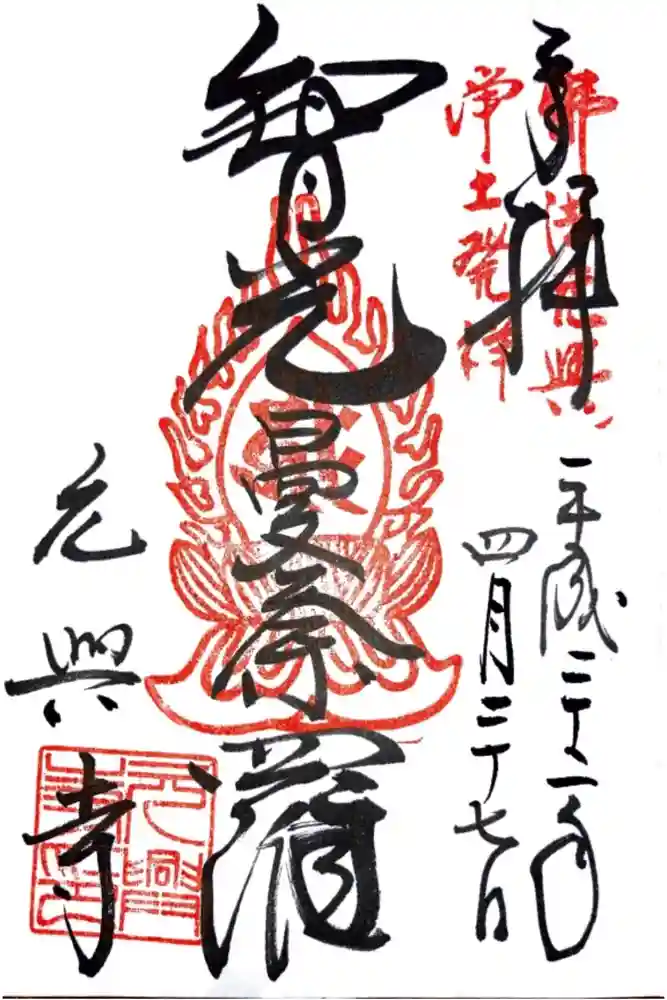 奉拝
佛法元興
浄土発祥
平成二十二年
四月二十七日
智光曼荼羅
元興寺